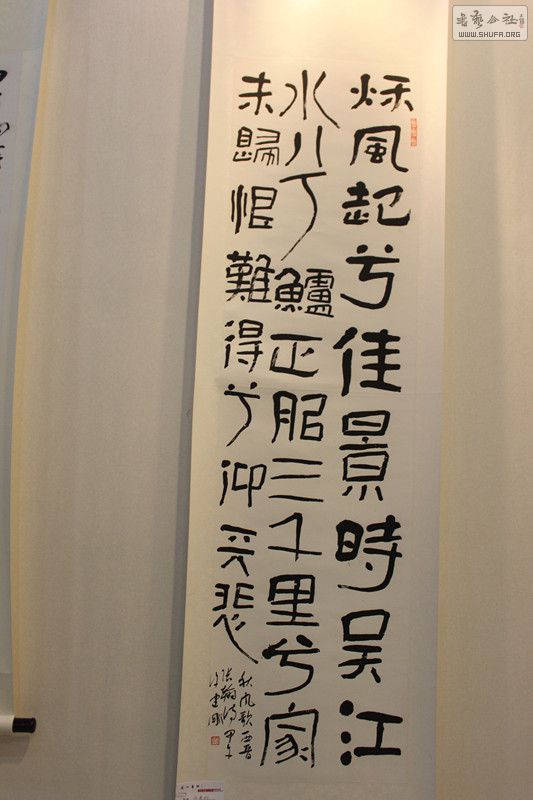 秋風起兮佳景時吴江
水兮鱸正肥三千里兮家
未歸恨難得兮仰天悲
秋風歌西晉
張翰詩甲午
書藝公社
WWW.SHUFA.ORG